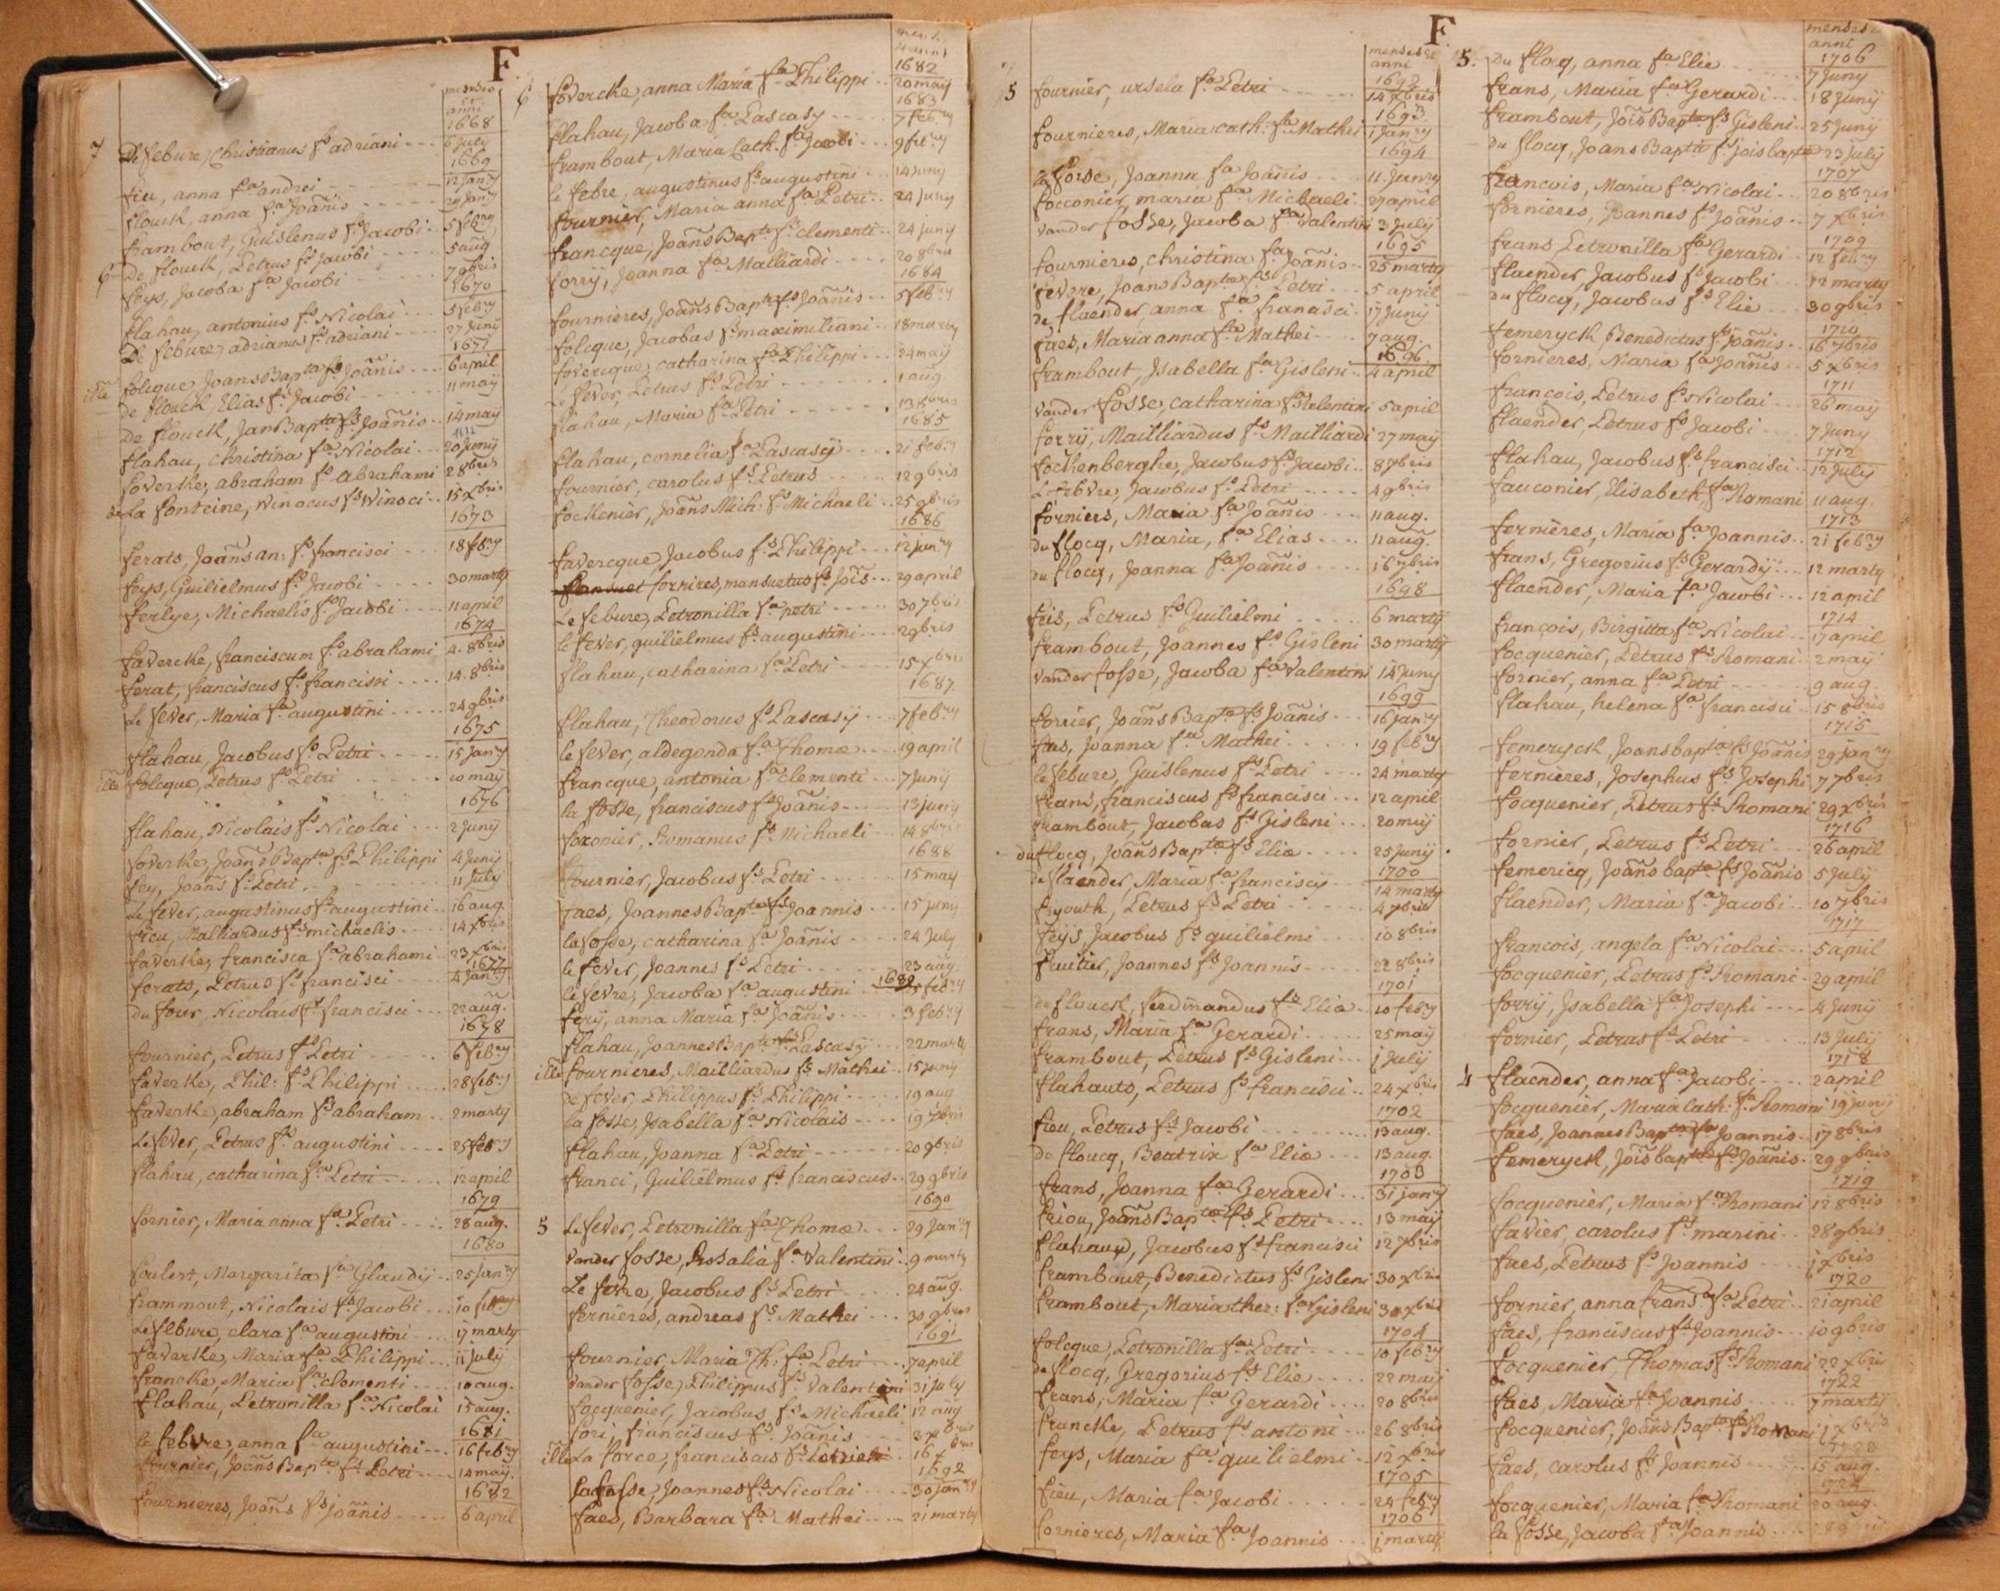 F
mensis et anni
1668
7 De febure, Christianus fs adriani 6 July
1669
fieu, anna fa andrei 12 Janry
flouck anna fa Joãnis 29 Janry
frambout, Guislenus fs Jacobi 5 febry
De flouck, Petrus fs Jacobi 5 aug
6 feys, Jacoba fa Jacobi 7 9bris
1670
flahau, antonius fs Nicolai 5 febry
De febure, adrianus fs adriani 27 Junij
1671
folcque Joans Bapta fs Joãnis 6 april
De flouck Elias fs Jacobi 11 may
De flouck, Jan Bapta fs Joãnis 14 may
flahau, Christina fa Nicolai 20 Junij
foverke, abraham fs abrahami 2 8bris
de La fonteine, Winocus fs Winoci 15 xbris
1673
ferats, Joãns an: fs francisci 18 febry
feys, Guilielmus fs Jacobi 30 martij
ferlye, Michaelis fs Jacobi 11 april
1674
faverke, franciscum fs abrahami 4. 8bris
ferat, franciscus fs francisci 14. 8bris
Le fever, Maria fa augustini 24 9bris
1675
flahau, Jacobus fs Petri 15 Janry
folcque, Petrus fs Petri 10 may
1676
flahau, Nicolais fs Nicolai 2 Junij
foverke, Joãns Bapta fs Philippi 4 Junij
fey, Joãns fs Petri 11 July
Le fever, augustinus fs augustini 16 aug.
frieu, Malhardus fs michaelis 14 xbris
faverke, francisca fa abrahami 23 xbris
1677
ferats, Petrus fs francisci 4 Janry
du four, Nicolais fs francisci 22 aug.
1678
fournier, Petrus fs Petri 6 febry
faverke, Phil: fs Philippi 28 febry
faverke, abraham fs abraham 2 marty
Le fever, Petrus fs augustini 25 febry
flahau, catharina fa Petri 12 april
1679
fornier, Maria anna fa Petri 28 aug.
1680
foulert, Margarita fa Glaudij 25 Janry
frammout, Nicolais fs Jacobi 10 febry
Le febure, clara fa augustini 17 marty
faverke, Maria fa Philippi 11 july
francke, Maria fa clementi 10 aug.
flahau, Petronilla fa Nicolai 15 aug.
1681
le febvre, anna fa augustini 16 febry
fournier, Joãns Bapta fs Petri 14 may.
1682
fournieres, Joãns fs joãnis 6 april
1682
6 fovercke, anna Maria fa Philippi 20 may
1683
flahau, Jacoba fa Pascasy 7 febry
frambout, Maria Cath. fa Jacobi 9 febry
le febre, augustinus fs augustini 14 juny
fournier, Maria anna fa Petri 24 juny
francque, Joãns Bapta fs clementi 24 juny
forrij, Joanna fa Malliardi 20 8bris
1684
fournieres, Joãns Bapta fs Joãnis 5 febry
folcque, Jacobus fs maximiliani 18 marty
fovercque, catharina fa Philippi 24 may
le fever, Petrus fs Petri 1 aug.
flahau, Maria fa Petri 13 xbris
1685
flahau, cornelia fa Pascasij 21 febry
fournier, carolus fs Petrus 12 9bris
fockenier, Joãns Mich: fs Michaeli 25 9bris
1686
favercque, Jacobus fs Philippi 12 janry
fornires, mansuetus fs Joĩs 29 april
Le febure, Petronilla fa petri 30 7bris
le fever, guilielmus fs augustini 29bris
flahau, catharina fa Petri 15 xbris
1687
flahau, Theodorus fs Pascasij 7 febry
le fever, aldegonda fa Thomæ 19 april
francque, antonia fa Clementi 7 junij
la fosse, franciscus fs Joãnis 13 junij
foxonier, Romanus fs Michaeli 14 8bris
1688
fournier, Jacobus fs Petri 15 may
faes, Joannes Bapta fs Joannis 15 juny
la fosse, catharina fa Joãnis 24 July
le fever, Joannes fs Petri 23 aug.
1689
le fevre, Jacoba fa augustini febry
fery, anna Maria fa Joãnis 3 febry
flahau, Joannes Bapta fs Pascasij 22 marty
fournieres, Mailliardus fs Mathei 15 juny
De fever, Philippus fs Philippi 19 aug
la fosse, Isabella fa Nicolais 19 7bris
flahau, Joanna fa Petri 20 9bris
franci, Guilielmus fs franciscus 29 9bris
1690
5 Le fever, Petronilla fa Thomæ 29 Janry
vander fosse, Rosalia fa Valentini 9 marty
Le fevre Jacobus fs Petri 24 aug.
fernieres, andreas fs Mathei 30 9bris
1691
fournier, Maria Th: fa Petri 7 april
Vander fosse, Philippus fs Valentini 31 july
focquenier, Jacobus fs Michaeli 12 aug
fori, franciscus fs Joãnis 3 xbris
La force, franciscus fs 16 xbris
1692
la fosse, Joannes fs Nicolai 30 Janry
faes, Barbara fa Mathei 21 marty
F
menses et anni
5 fournier, ursela fa Petri 14 xbris
1693
fournieres, Maria cath. fa Mathei 1 Janry
1694
la forse, Joanna fa Joãnis 11 Janry
focconier, maria fa Michaeli 29 april
vander fosse, Jacoba fa Valentini 3 July
1695
fournieres, christina fa Joãnis 25 marty
fevere, Joans Bapta fs Petri 5 april
de flaender, anna fa francisci 17 Junij
faes, Maria anna fa Mathei 7 aug.
1696
frambout, Isabella fa Gisleni 4 april
vander fosse, catharina fa Valentini 5 april
forrij, Mailliardus fs Mailliardi 27 may
fockenberghe, Jacobus fs Jacobi 8 7bris
Le febvre, Jacobus fs Petri 4 9bris
forniers, Maria fa Joãnis 11 aug.
du flocq, Maria, fa Elias 11 aug.
du flocq, Joanna fa Joãnis 16 7bris
1698
feis, Petrus fs Guilielmi 6 martij
frambout, Joannes fs Gisleni 30 martij
vander fosse, Jacoba fa Valentini 14 juny
1699
forrier, Joãns Bapta fs Joãnis 16 janry
faes, Joanna fa Mathei 19 febry
le febure, Guislenus fs Petri 24 marty
frans, franciscus fs francisci 12 april
frambout, Jacobus fs Gisleni 20 maij
du flocq, Joãns Bapta fs Eliæ 25 junij
1700
de flaender, Maria fa franciscij 14 marty
fryouth, Petrus fs Petri 4 7bris
feijs Jacobus fs guilielmi 10 8bris
frutier, Joannes fs Joannis 22 8bris
1701
du flouck, ferdinandus fs Eliæ 10 febry
frans, Maria fa Gerardi 25 maij
frambout, Petrus fs Gisleni 1 July
flahauts, Petrus fs francisci 24 xbris
1702
fieu, Petrus fs Jacobi 13 aug.
de floucq, Beatrix fa Eliæ 13 aug.
1703
frans, Joanna fa Gerardi 31 janry
friou, Joãns Bapta fs Petri 13 maij
flahauw, Jacobus fs francisci 12 7bris
frambout, Benedictus fs Gisleni 30 xbris
frambout, Maria ther: fa Gisleni 30 xbris
1704
folcque, Petronilla fa Petri 10 febry
de flocq, Gregorius fs Elie 22 maij
frans, Maria fa Gerardi 20 8bris
francke, Petrus fs antoni 26 8bris
feys, Maria fa guilielmi 12 xbris
1705
fieu, Maria fa Jacobi 24 febry
1706
fornieres, Maria fa Joannis 1 marty
menses et anni
1706
5. du flocq, anna fa Elie 7 Juny
frans, Maria fa Gerardi 18 Junij
frambout, Joĩs Bapta fs Gisleni 25 Junij
du flocq, Joans Bapta fs Jois bapta 23 july
1707
francois, Maria fa Nicolai 20 8bris
fornieres, Joannes fs Joãnis 7 xbris
1709
frans Petronilla fa Gerardi 12 febry
flaender, Jacobus fs Jacobi 12 marty
du flocq, Jacobus fs Elie 30 9bris
1710
femeryck Benedictus fs Joãnis 16 7bris
fornieres, Maria fa Joãnis 5 xbris
1711
françois, Petrus fs Nicolai 26 maij
flaender, Petrus fs Jacobi 7 Juny
1712
flahau, Jacobus fs francisci 12 July
fauconier, Elisabeth fa Romani 11 aug.
1713
fernières, Maria fa Joannis 21 febry
frans, Gregorius fs Gerardij 12 marty
flaender, Maria fa Jacobi 12 april
1714
françois, Birgitta fa Nicolai 17 april
focquenier, Petrus fs Romani 2 maij
fornier, anna fa Petri 9 aug.
flahau, helena fa francisci 15 8bris
1715
femeryck, Joans bapta fs Joãnis 29 janry
fernieres, Josephus fs Josephi 7 7bris
focquenier, Petrus fs Romani 29 xbris
1716
fornier, Petrus fs Petri 26 april
femericq, Joãns bapta fs Joãnis 5 July
flaender, Maria fa Jacobi 10 7bris
1717
francois, angela fa Nicolai 5 april
focquenier, Petrus fs Romani 29 april
forrij, Isabella fa Josephi 4 Junij
fornier, Petrus fs Petri 13 July
1718
4 flaender, anna fa Jacobi 2 april
focquenier, Maria Cath: fa Romani 19 junij
faes, Joannes Bapta fs Joannis 17 8bris
femeryck, Joĩs bapta fs Joãnis 29 9bris
1719
focquenier, Maria fa Romani 12 8bris
favier, carolus fs marini 28 9bris
faes, Petrus fs Joannis 1 xbris
1720
fornier, anna frans: fa Petri 21 april
faes, franciscus fs Joannis 10 9bris
focquenier, Thomas fs Romani 22 xbris
1722
faes, Maria fa Joannis 7 marty
focquenier, Joãns Bapta fs Romani 1 xbris
faes, carolus fs Joannis 15 aug.
1724
focquenier, Maria fa Romani 20 aug.
la fosse, Jacoba fa Joannis